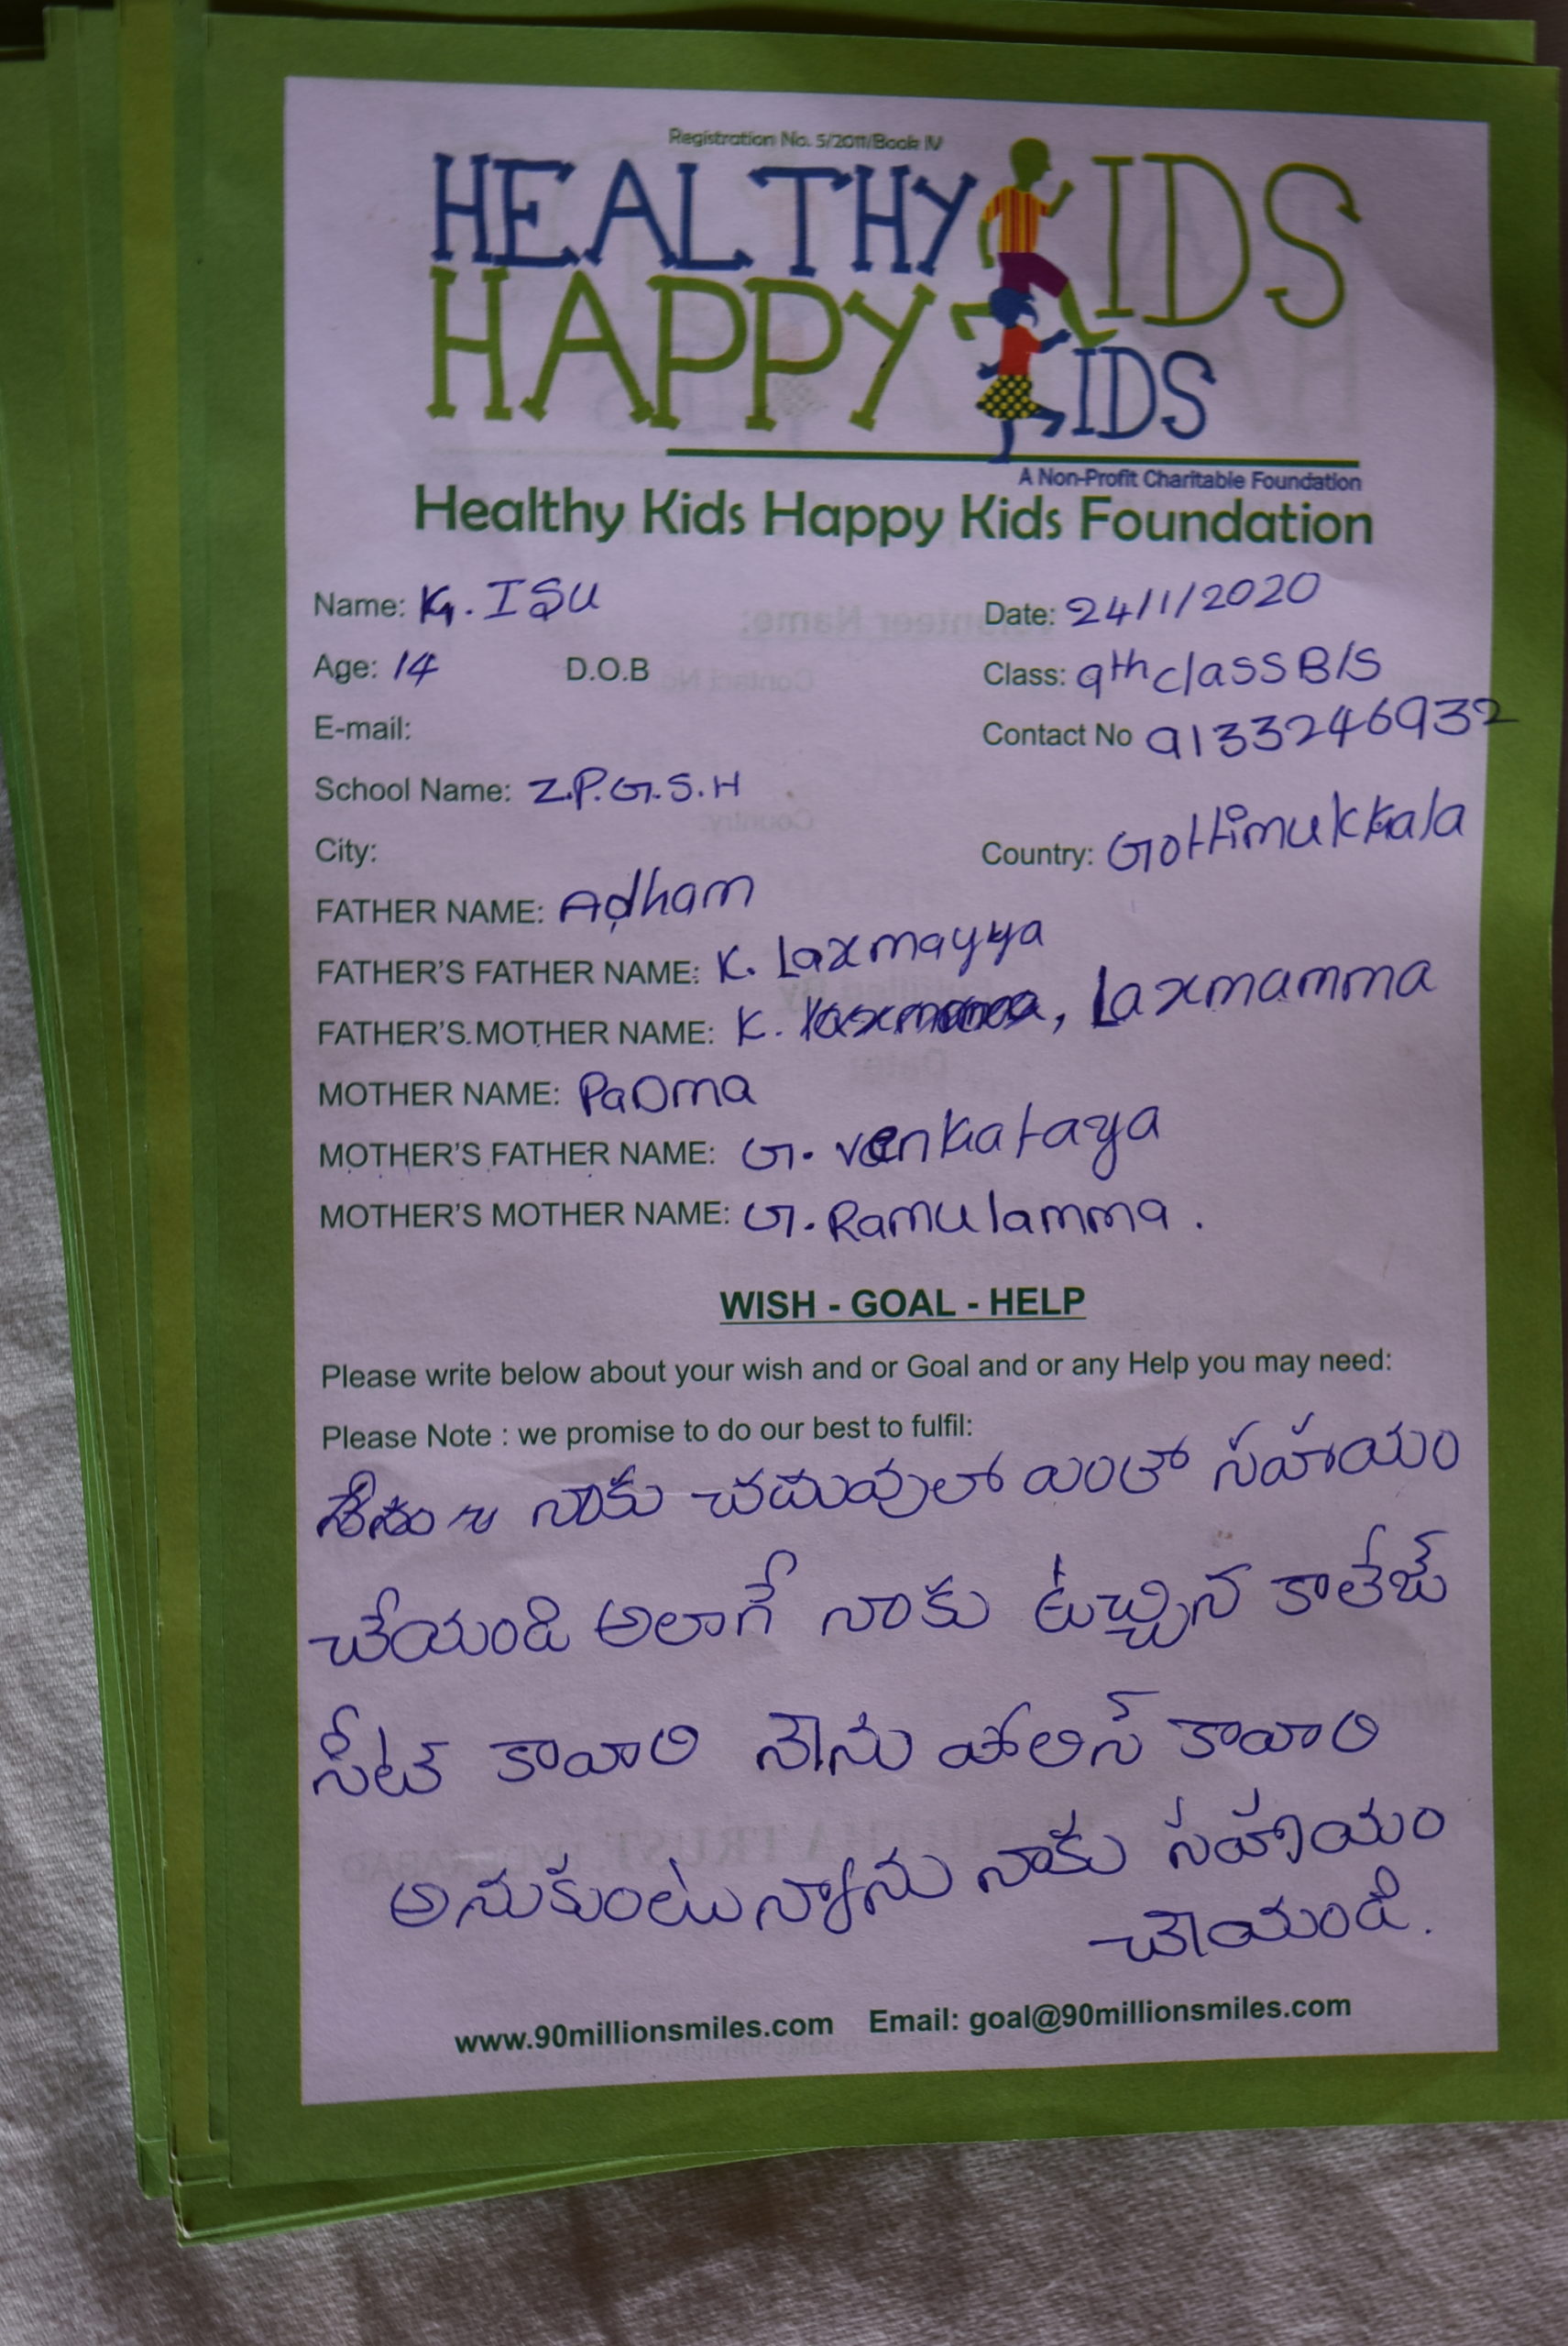 Registration No. 5/2011/Book IV
HEALTHY KIDS
HAPPY KIDS
A Non-Profit Charitable Foundation
Healthy Kids Happy Kids Foundation
Name: K. ISU Date: 24/1/2020
Age: 14 D.O.B Class: 9th class B/S
E-mail: Contact No 9133246932
School Name: Z.P.G.S.H
City: Country: Gottimukkala
FATHER NAME: Adham
FATHER'S FATHER NAME: K. Laxmayya
FATHER'S MOTHER NAME: K. , Laxmamma
MOTHER NAME: PaDma
MOTHER'S FATHER NAME: G. venkataya
MOTHER'S MOTHER NAME: G. Ramulamma.
WISH - GOAL - HELP
Please write below about your wish and or Goal and or any Help you may need:
Please Note : we promise to do our best to fulfil:
నాకు చదువులో ఎంతో సహయం
చేయండి అలాగే నాకు ఉచ్చిన కాలేజ్
సీట్ కావాలి నౌను పోలిస్ కావాలి
అనుకుంటున్నాను నాకు సహాయం
చౌయండి.
www.90millionsmiles.com Email: goal@90millionsmiles.com